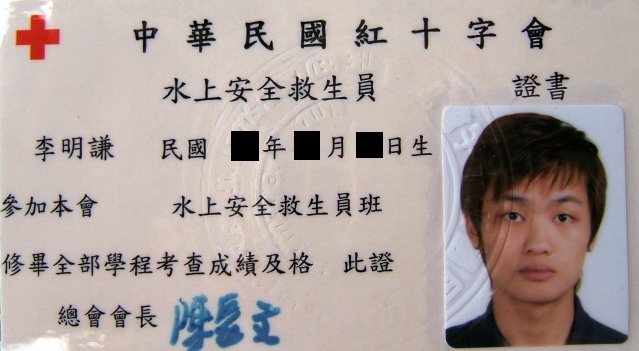 中華民國紅十字會
水上安全救生員 證書
李明謙 民國 年 月 日生
參加本會 水上安全救生員班
修畢全部學程考查成績及格 此證
總會會長 陳長文